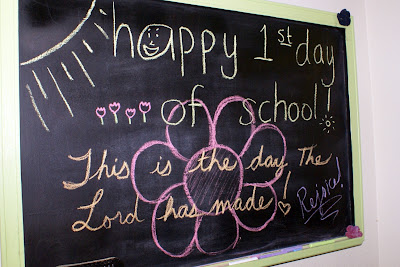 happy 1st day
of school!
This is the day The
Lord has made!
Rejoice!